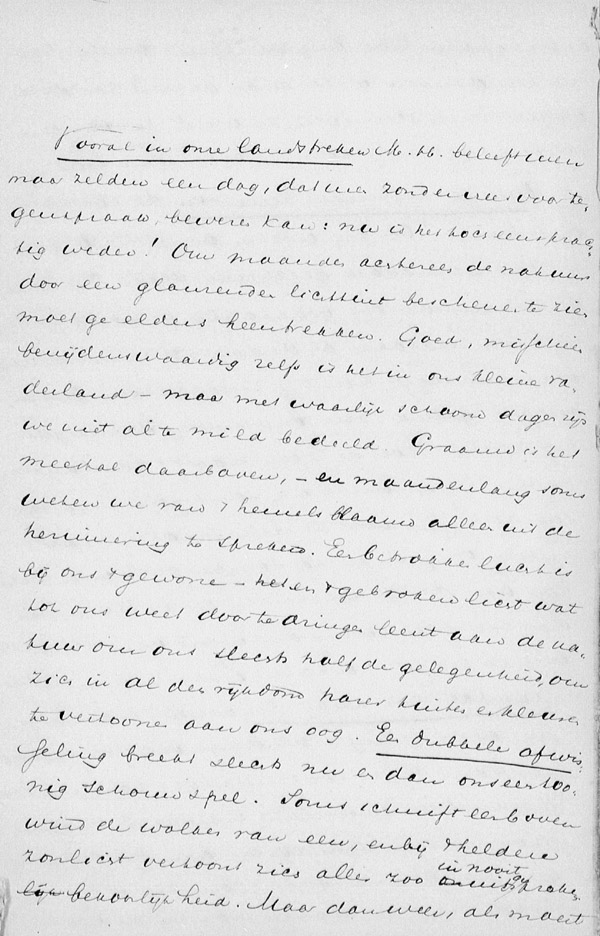 Vooral in onze landstreken M. H. beleeft men
maar zelden een dag, dat men zonder vrees voor te-
genspraak, beweren kan: nu is het toch eens prag-
tig weder! Om maanden achtereen de natuur
door een glanzenden lichttint beschenen te zien
moet ge elders heentrekken. Goed, misschien
benijdenswaardig zelfs is het in ons kleine va-
derland – maar met waarlijk schoone dagen zijn
we niet al te mild bedeeld. Graauw is het
meestal daarboven, – en maandenlang soms
weten we van 't hemelsblaauw alleen uit de
herinnering te spreken. Een betrokken lucht is
bij ons 't gewone – het en 't gebroken licht wat
tot ons weet door te dringen leent aan de na-
tuur om ons slechts half de gelegenheid, om
zich in al den rijkdom harer tinten en kleuren
te vertoonen aan ons oog. Een dubbele afwis-
seling breekt slechts nu en dan ons eentoo-
nig schouwspel. Soms schuift een boven
wind de wolken van een, en bij 't heldere
zonlicht vertoont zich alles zoo in nooit
bekoorlijkheid. Maar dan weer, als moest